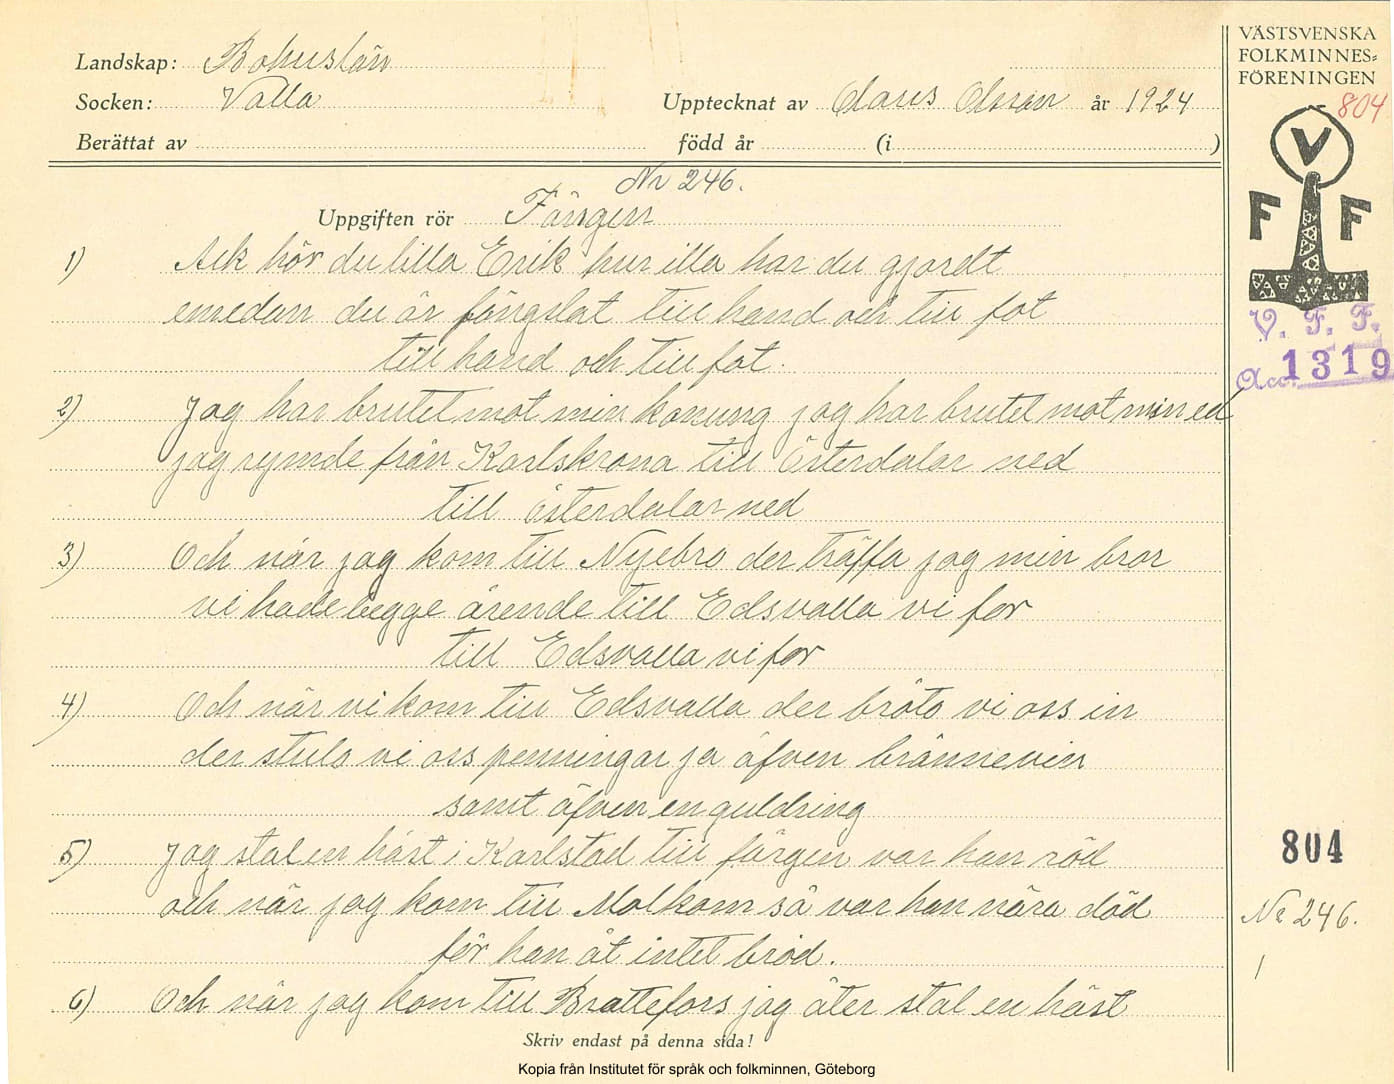 Landskap: Bohuslän
Socken: Valla
Upptecknat av Claus Olsson år 1924
Berättat av
född år (i )
VÄSTSVENSKA
FOLKMINNES-
FÖRENINGEN
804
V
F F
V. F. F.
Acc. 1319
Nr 246.
Uppgiften rör Fången
1) Ack hör du lilla Erik hur illa har du gjordt
emedan du är fängslat till hand och till fot
till hand och till fot.
2) Jag har brutet mot min konung jag har brutet mot min ed
jag rymde från Karlskrona till Österdalar ned
till Österdalar ned
3) Och når jag kom till Nyebro der träffa jag min bror
vi hade begge ärende till Edsvalla vi for
till Edsvalla vi for
4) Och når vi kom till Edsvalla der bröto vi oss in
der stulo vi oss penningar ja äfven brännevin
samt äfven en guldring
5) Jag stal en häst i Karlstad till färgen var han röd
och når jag kom till Molkom så var han nära död
för han åt intet bröd.
6) Och når jag kom till Brattefors jag åter stal en häst
804
Nr 246.
1
Skriv endast på denna sida!
Kopia från Institutet för språk och folkminnen, Göteborg